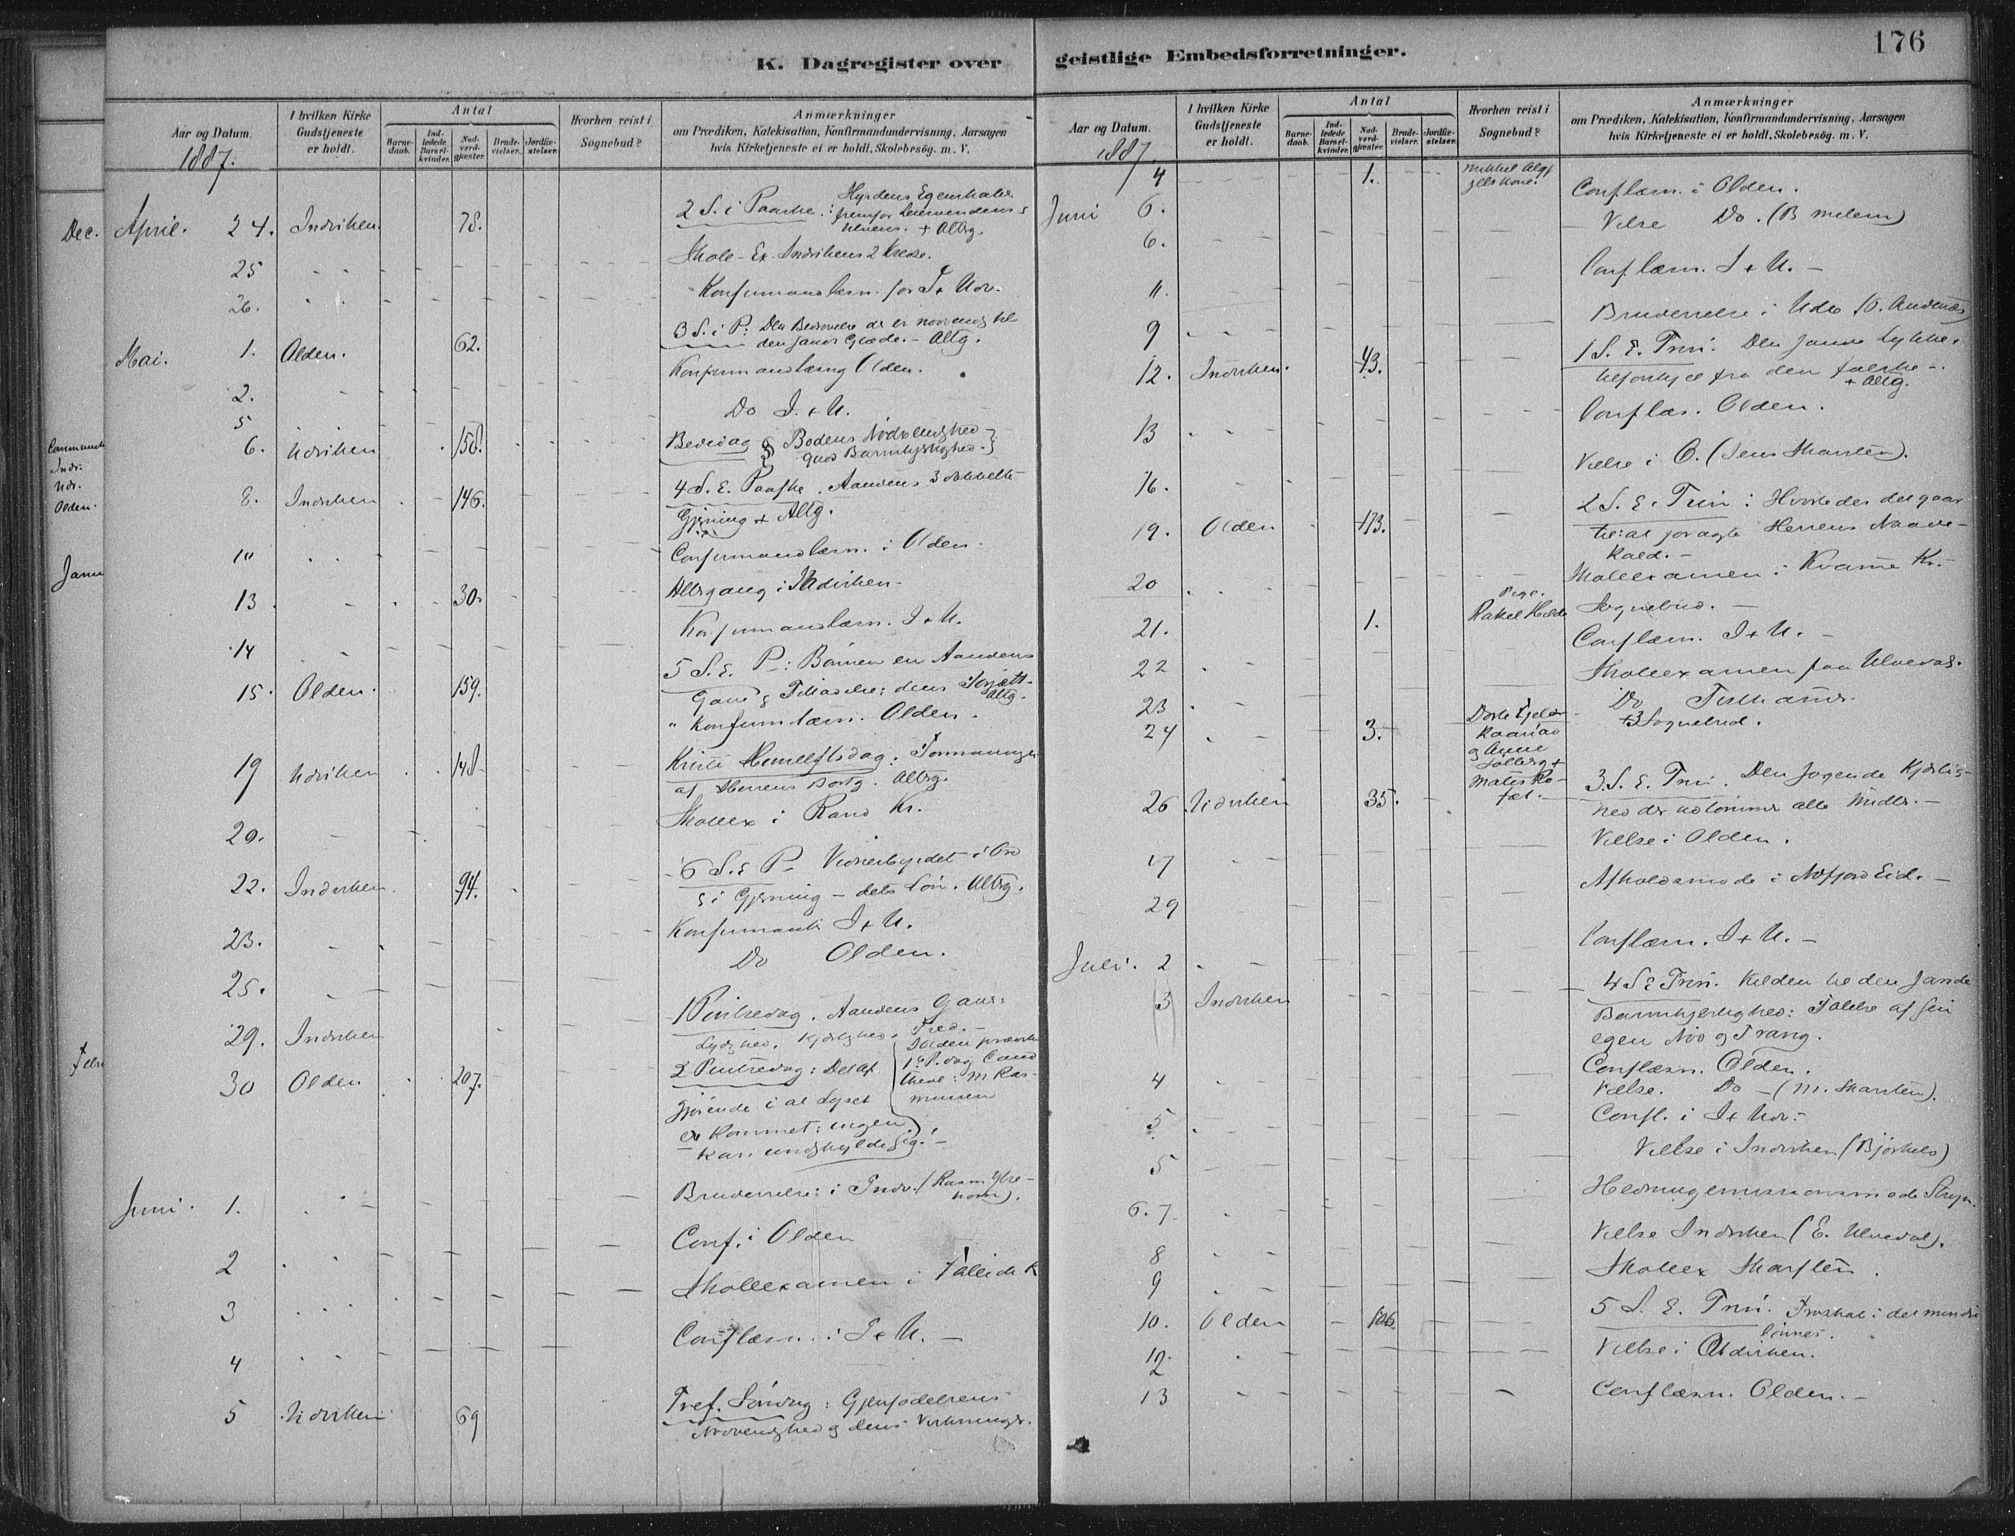 176
K. Dagregister over geistlige Embedsforretninger.
Aar og Datum.
I hvilken Kirke Gudstjeneste er holdt.
Antal
Barne-daab.
Ind-ledede Barsel-kvinder.
Nad-verd-gjæster
Brude-vielser.
Jordfæ-stelser.
Hvorhen reist i Sognebud?
Anmærkninger
om Prædiken, Katekisation, Konfirmandundervisning, Aarsagen
hvis Kirketjeneste ei er holdt, Skolebesög. m. V.
1887.
April. 24. Indviken. 78. 2 S. i Paaske: Hyrdens Egenskaber
fremfor Leiesvendens &
Ulvens. + Altrg.
25 Skole-Ex. Indvikens 2 Kredse.
26. Konfirmandlæsn. for I + Udv.
Mai. 1. Olden. 62. 3 S. i P: Den Bedrøvelse der er nødvendig til
den sande Glæde. - Altg.
2. Konfirmandlæsng Olden.
5 Do I. + U.
6. Udviken 158. Bededag Bodens Nødvendighed
Guds Barmhjertighed.
8. Indviken 146. 4 S. E. Paaske. Aandens 3 dobbelte
Gjerning + Altg.
10 Confirmandlæsn. i Olden.
13 30. Altergang i Indviken.
14 Konfirmandlæsn. I + U.
15. Olden. 159. 5 S. E. P: Bønnen en Aandens
Gave &
Altg.
" Konfirmlæsn. Olden.
19 Udviken 148 Kristi Himmelfartsdag: Formaninger
af Herrens Bortg. Altrg.
20. Skolex i Rand Kr.
22. Indviken. 94. 6 S. E P. Vidnesbyrdet i Ord
& i Gjerning - dets Løn. Altrg.
23. Konfirmantl I + U.
25. Do Olden.
29. Indviken 1 Pintsedag. Aandens Gaver:
Lydighed, Kjærlighed, Fred. -
30 Olden 207. 2 Pintsedag: Det af
gjørende i at Lyset
er kommet: ingen
kan undskylde sig! -
Juni. 1. Brudevielse: i Indv. (Rasm
2 Conf. i Olden
3 Skolexamen i Falleide K
4 Conflæsn. i I + U. -
5 Udviken 69 Tref. Søndag: Gjenfødelsens
Nødvendighed og dens Virkninger.
Aar og Datum.
I hvilken Kirke Gudstjeneste er holdt.
Antal
Barne-daab.
Ind-ledede Barsel-kvinder.
Nad-verd-gjæster.
Brude-vielser.
Jordfæ-stelser.
Hvorhen reist i Sognebud?
Anmærkninger
om Prædiken, Katekisation, Konfirmandundervisning, Aarsagen
hvis Kirketjeneste ei er holdt, Skolebesög. m. V.
1887.
4 1. Mikkel Conflæsn. i Olden.
Juni 6. Vielse Do. (B Melem)
6. Conflæsn. I + U. -
11. Brudevielse i Udv
9
12. Indviken. 43. 1 S. E. Trin: Den sande Lykke,
til forskjel fra den falske -
+ Altg.
13 Conflæs. Olden.
16. Vielse i O. (Jens Skarsten).
19. Olden 113. 2 S. E. Trin: Hvorledes det gaar
til: at foragte Herrens Naade-
kald. -
20 Skolexamen i Kvame Kr.
21. 1. Pige. Rakel Hilde Sognebud. -
22 Conflæsn. I + U. -
23 Skolexamen paa Ulvedal.
24 3. Do
+ 3 Sognebud.
26 Udviken 35. 3. S. E. Trin. Den søgende Kjærlig-
hed der udtømmer alle Midler. -
17 Vielse i Olden.
29 Afholdsmøde i Nofjord Eid. -
Juli. 2 Conflæsn. I + U. -
3 Indviken 4 S E Trin. Kilden til den sande
Barmhjertighed: Følelse af sin
egen Nød og Trang.
4 Conflæsn. Olden.
Vielse. Do - (M. Skarsten).
5 Confl. i I + Udv. -
5 Vielse i Indviken (Bjørhels)
6. 7 Hedningemissionsmøde Stryn.
8 Vielse Indviken (E. Ulvedal).
9 Skolex Skarsten.
10. Olden 106. 5 S. E. Trin. Troskab i det mindre
lønnes.
12. Vielse i Oldviken.
13 Conflæsn. Olden. -
Dec.
Indv.
Udv.
Olden.